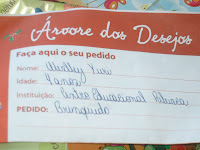 Árvore dos Desejos
Faça aqui o seu pedido
Nome: Yuri
Idade: 4 anos
Instituição: Centro Educacional
PEDIDO: Brinquedo